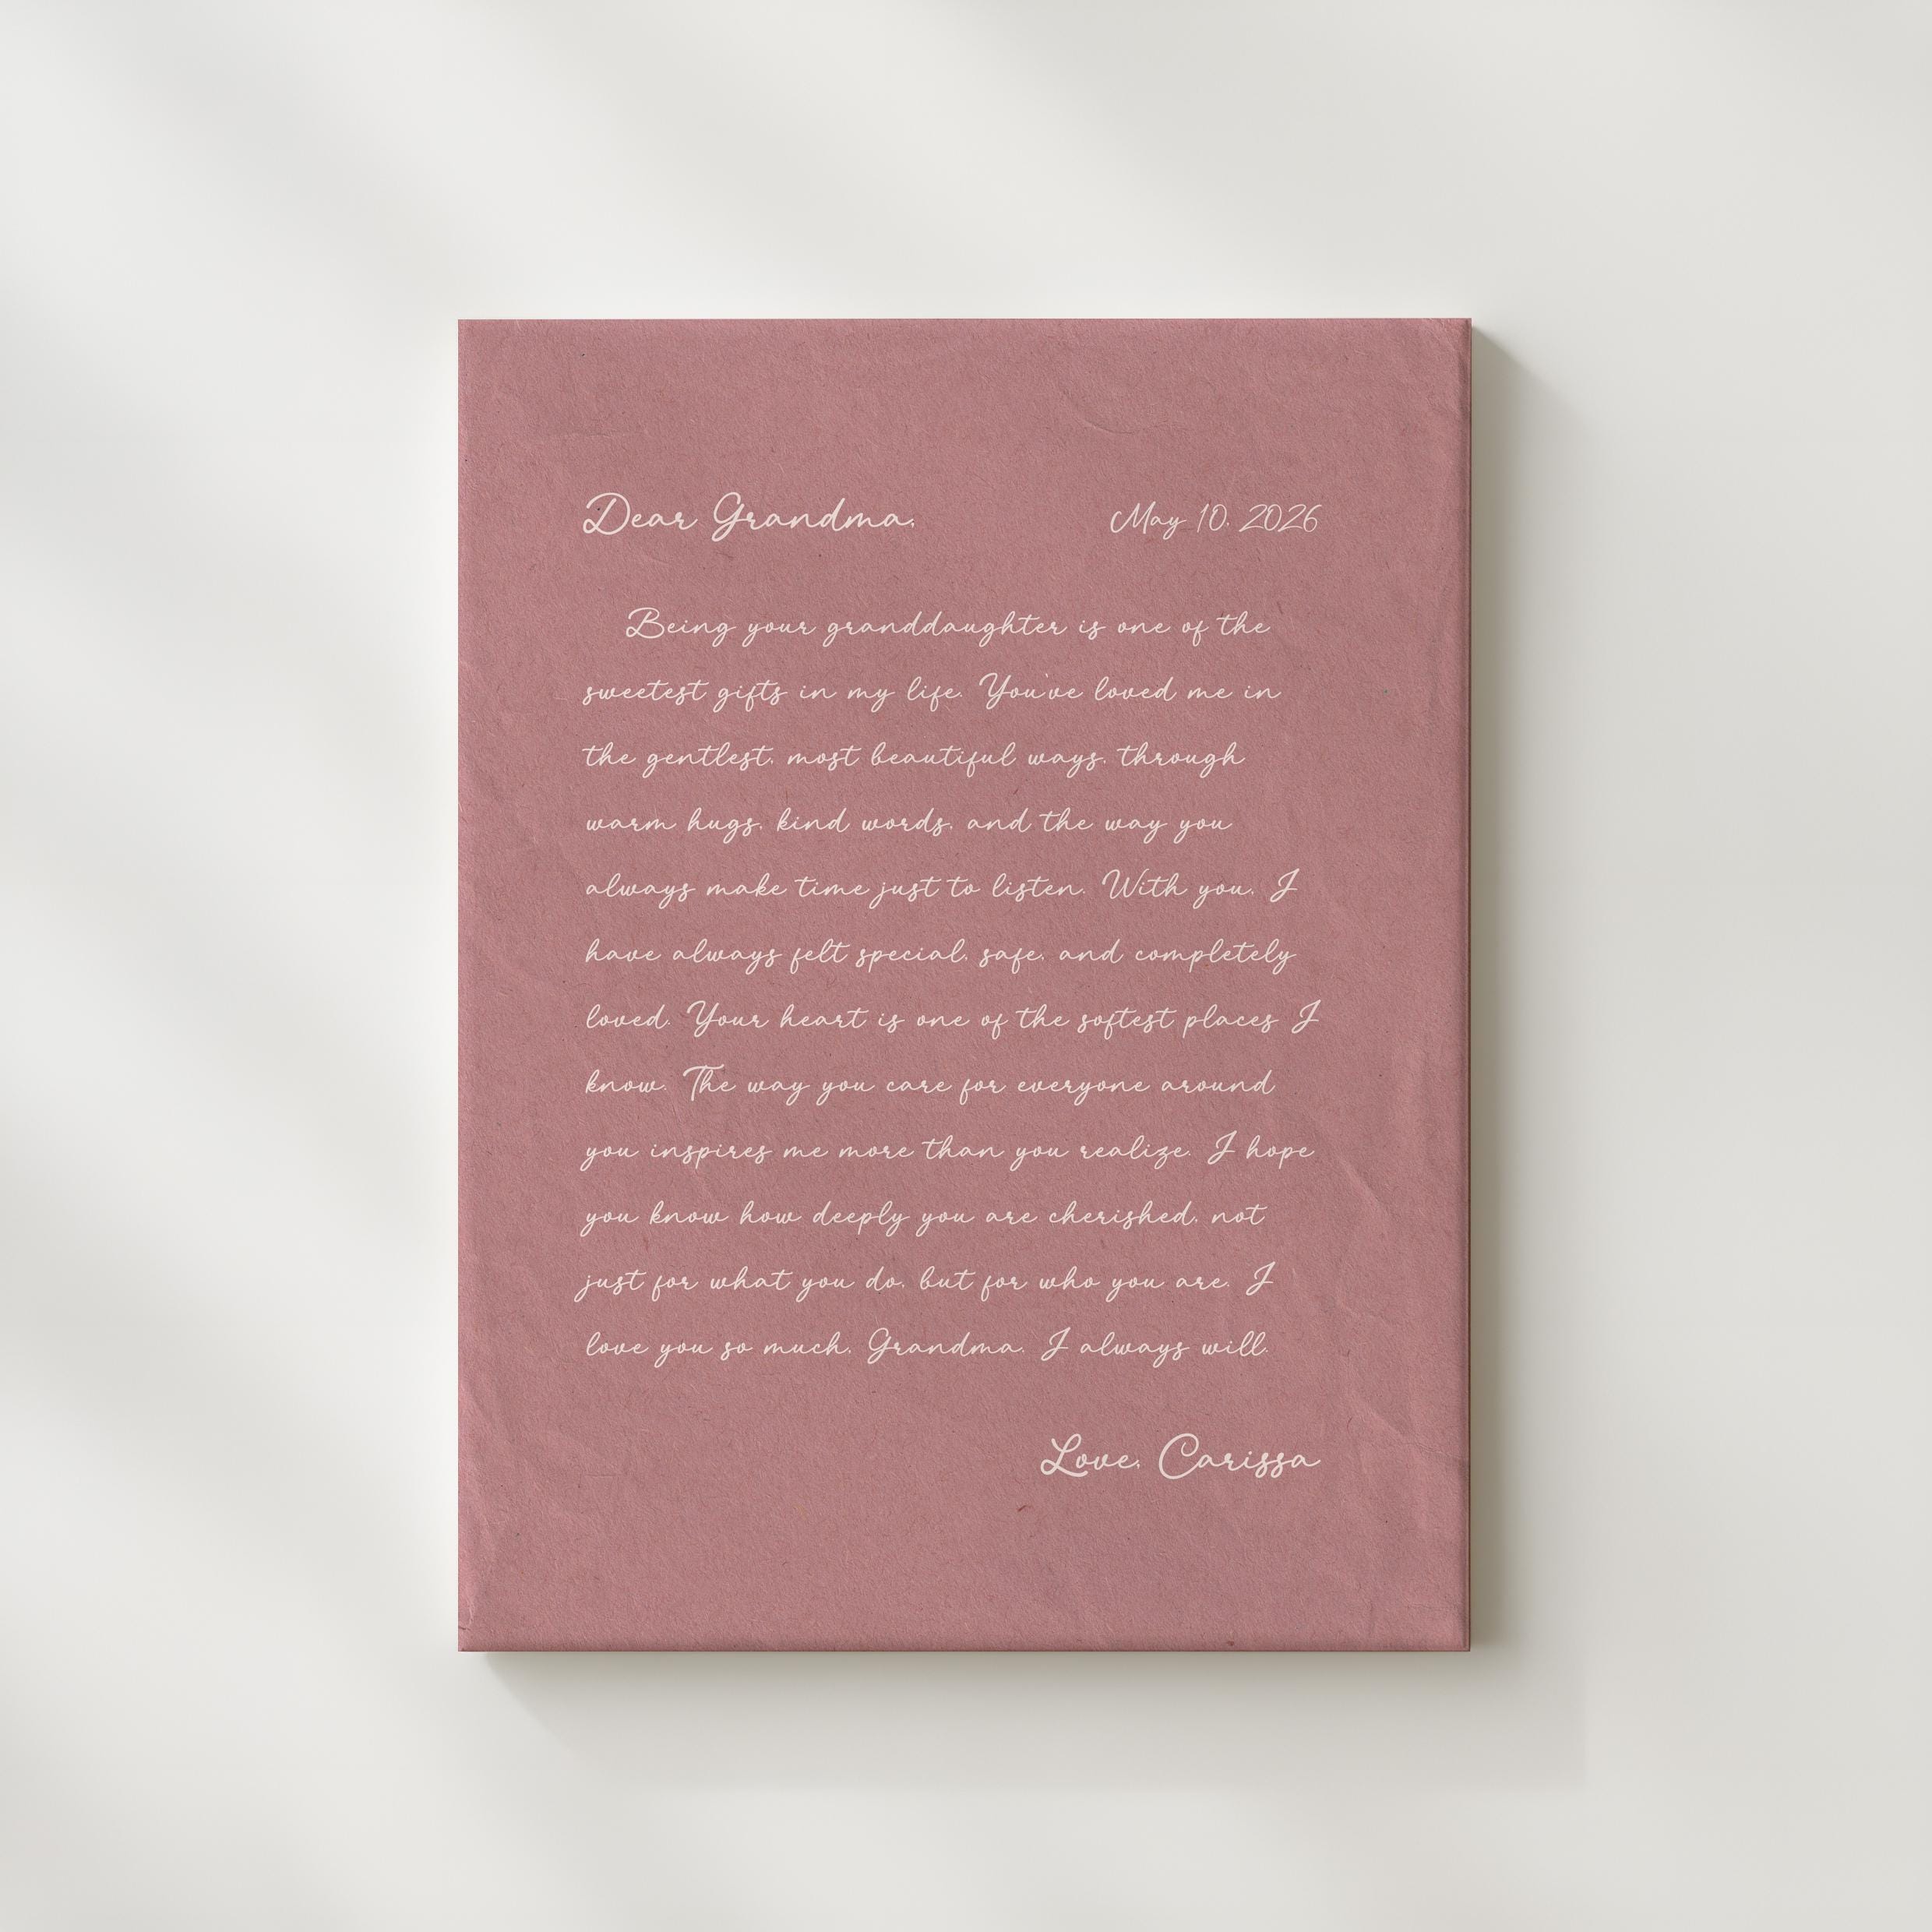 Dear Grandma, May 10, 2026
Being your granddaughter is one of the
sweetest gifts in my life. You've loved me in
the gentlest, most beautiful ways, through
warm hugs, kind words, and the way you
always make time just to listen. With you, I
have always felt special, safe, and completely
loved. Your heart is one of the softest places I
know. The way you care for everyone around
you inspires me more than you realize. I hope
you know how deeply you are cherished, not
just for what you do, but for who you are. I
love you so much, Grandma. I always will.
Love, Carissa